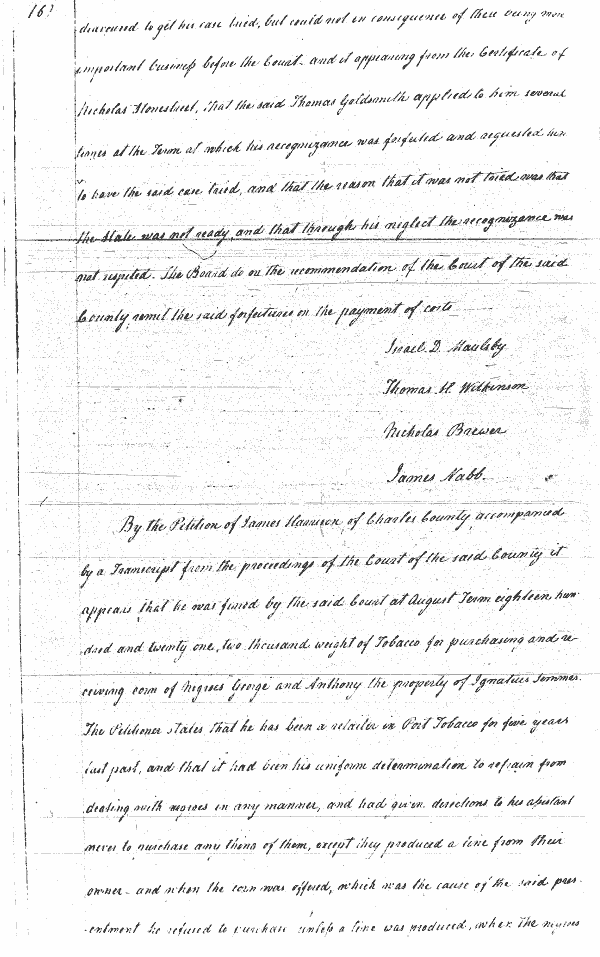 167
deavoured to get his case tried, but could not in consequence of there being more
important business before the Court - and it appearing from the Certificate of
Nicholas Stonestreet, that the said Thomas Goldsmith applied to him several
times at the Term at which his recognizance was forfeited and requested him
to have the said case tried, and that the reason that it was not tried was that
the State was not ready, and that through his neglect the recognizance was
not respited. The Board do on the recommendation of the Court of the said
County remit the said forfeitures on the payment of costs
Israel D. Maulsby
Thomas H. Wilkinson
Nicholas Brewer
James Nabb.
By the Petition of James Harrison of Charles County accompanied
by a Transcript from the proceedings of the Court of the said County it
appears that he was fined by the said Court at August Term eighteen hun
dred and twenty one, two thousand weight of Tobacco for purchasing and re-
ceiving corn of negroes George and Anthony the property of Ignatius Semmes.
The Petitioner states that he has been a retailer in Port Tobacco for five years
last past, and that it had been his uniform determination to refrain from
dealing with negroes in any manner, and had given directions to his assistant
never to purchase any thing of them, except they produced a line from their
owner - and when the corn was offered, which was the cause of the said pres-
entment he refused to purchase unless a line was produced, when the negroes